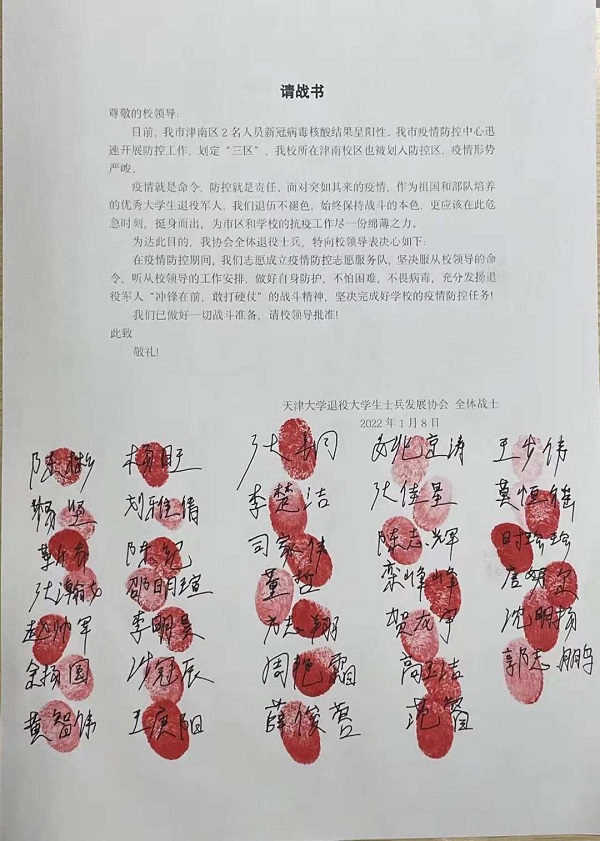 请战书
尊敬的校领导:
目前,我市津南区2名人员新冠病毒核酸结果呈阳性。我市疫情防控中心迅
速开展防控工作,划定“三区”,我校所在津南校区也被划入防控区,疫情形势
严峻。
疫情就是命令,防控就是责任。面对突如其来的疫情,作为祖国和部队培养
的优秀大学生退役军人,我们退伍不褪色,始终保持战斗的本色,更应该在此危
急时刻,挺身而出,为市区和学校的抗疫工作尽一份绵薄之力。
为达此目的,我协会全体退役士兵,特向校领导表决心如下:
在疫情防控期间,我们志愿成立疫情防控志愿服务队,坚决服从校领导的命
令,听从校领导的工作安排,做好自身防护,不怕困难,不畏病毒,充分发扬退
役军人“冲锋在前,敢打硬仗”的战斗精神,坚决完成好学校的疫情防控任务!
我们已做好一切战斗准备,请校领导批准!
此致
敬礼!
天津大学退役大学生士兵发展协会 全体战士
2022年1月8日
陈彬 杨旺 姚京涛 王步伟
刘雅倩 李楚洁 张佳星
陈志辉 时珍珍
邵明瑄 董哲 栾峰峰
赵帅军 李明昊 沈明扬
余扬国 周艳霜 高玉洁 郭志鹏
黄智伟 王庚阳 范睿